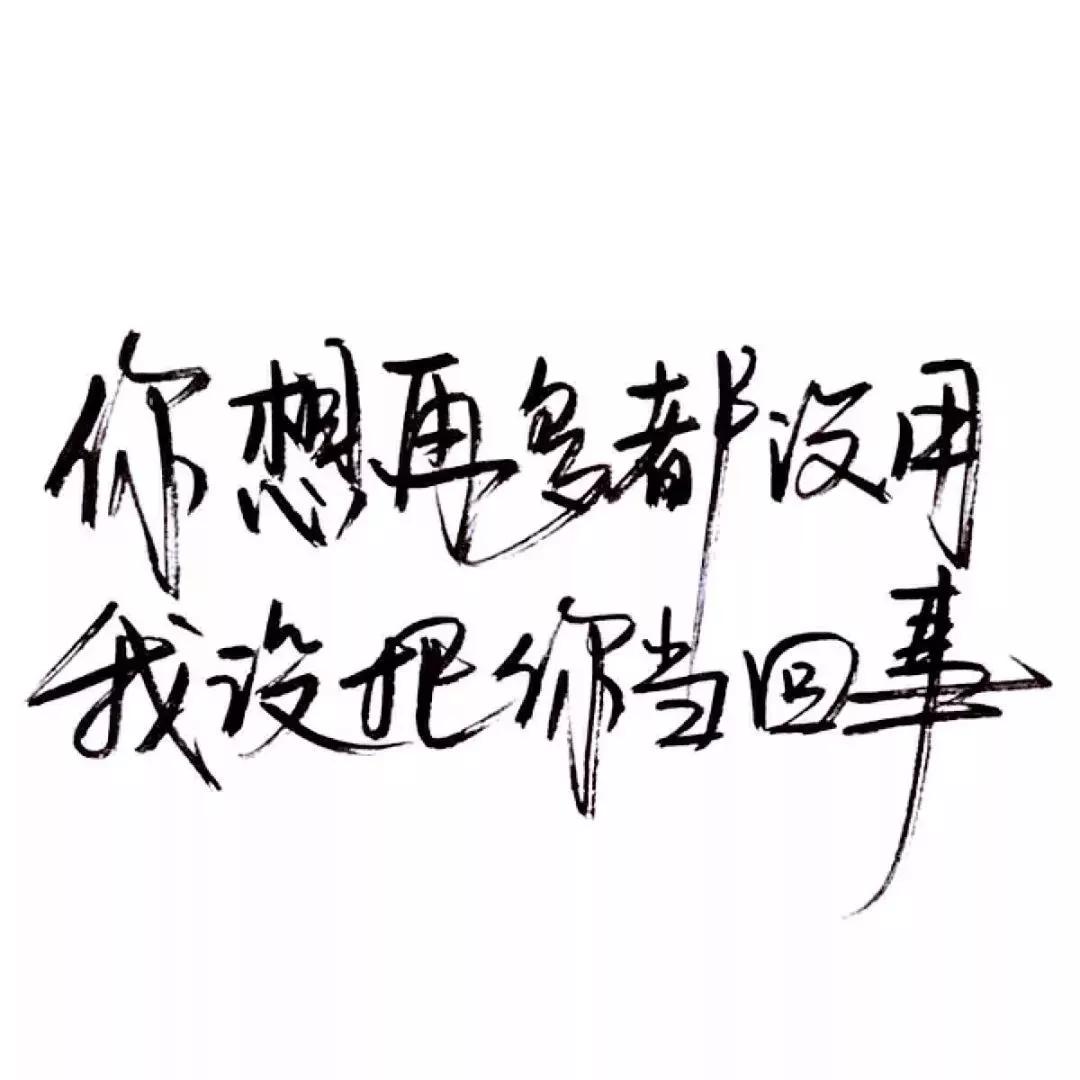 你想再多都没用
我没把你当回事